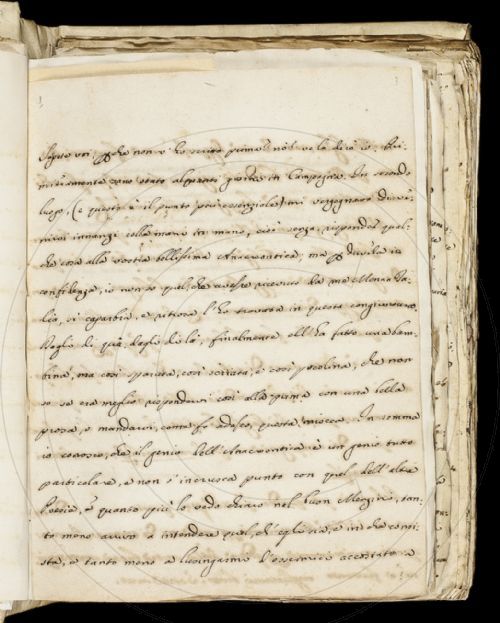 3
Sapete voi, perchè non v'ho scritto prima? nò? ve lo dirò io. Pri-
mieramente sono stato alquanti giorni in Campagna. In secondo
luogo, (e questo è il punto più essenziale) mi vergognavo di veni-
mivi innanzi colle mani in mano, cioè senza rispondere qual-
che cosa alla vostra bellissima Anacreontica; ma per dirvela in
confidenza, io non so quel che avesse ricevuto da me Monna Ta-
lia, sì caparbia, e ritrosa l'ho trovata in questa congiuntura.
Dagli di quà, dagli di là, finalmente ell'ha fatto una bam-
bina, ma così sparuta, così scriata, e così piccolina, che non
so se era meglio rispondervi così alla prima con una bella
prosa, e mandarvi, come fo adesso, questa miseria. In somma
io conosco, che il genio dell'Anacreontica è un genio tutto
particolare, e non s'incrocia punto con quel dell'altre
Poesie, e quanto più lo vedo chiaro nel buon Menzini, tan-
to meno arrivo a intendere quel, ch'egli sia, e in che consi-
sta, e tanto meno a lusingarmi d'essermici accostato a